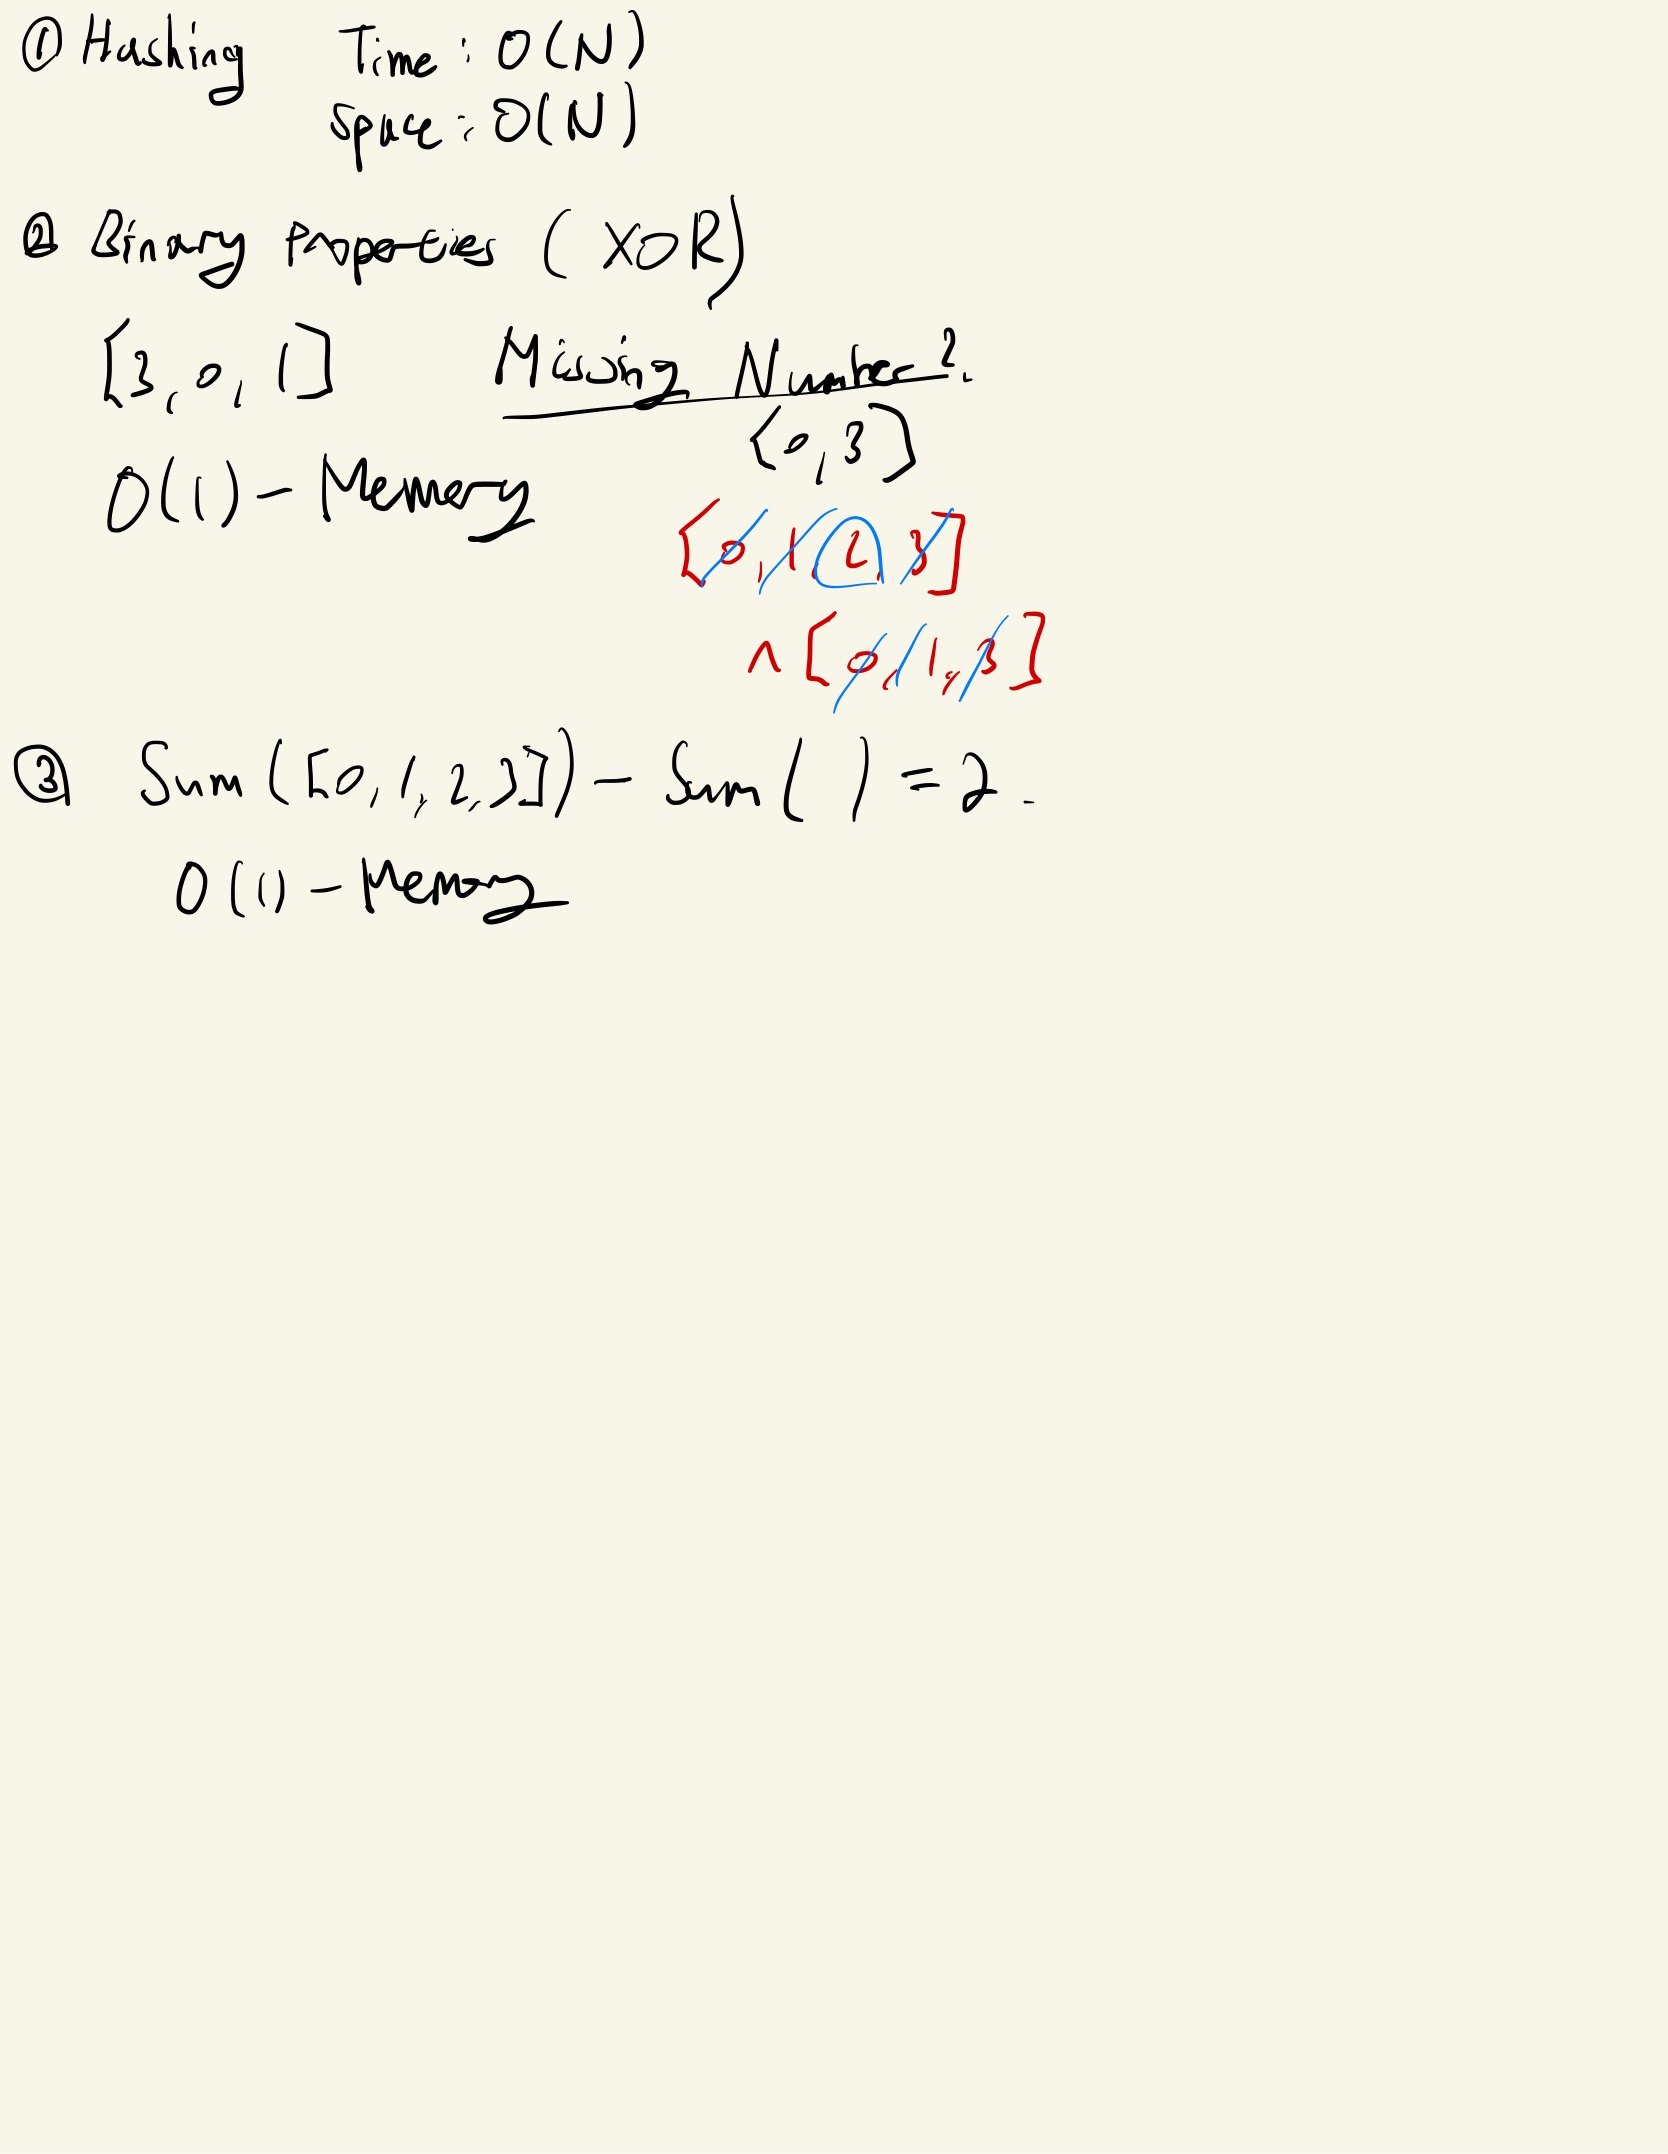 ① Hashing Time: O(N)
Space: O(N)
② Binary Properties (XOR)
[3, 0, 1] Missing Number?
[0, 3]
O(1) - Memory
[0, 1, 2, 3]
^ [0, 1, 3]
③ Sum([0, 1, 2, 3]) - Sum( ) = 2.
O(1) - Memory